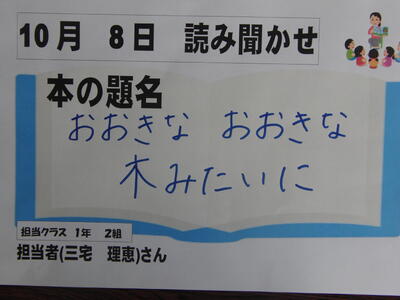 10月 8日 読み聞かせ
本の題名
おおきな おおきな
木みたいに
担当クラス 1年 2組
担当者(三宅 理恵)さん